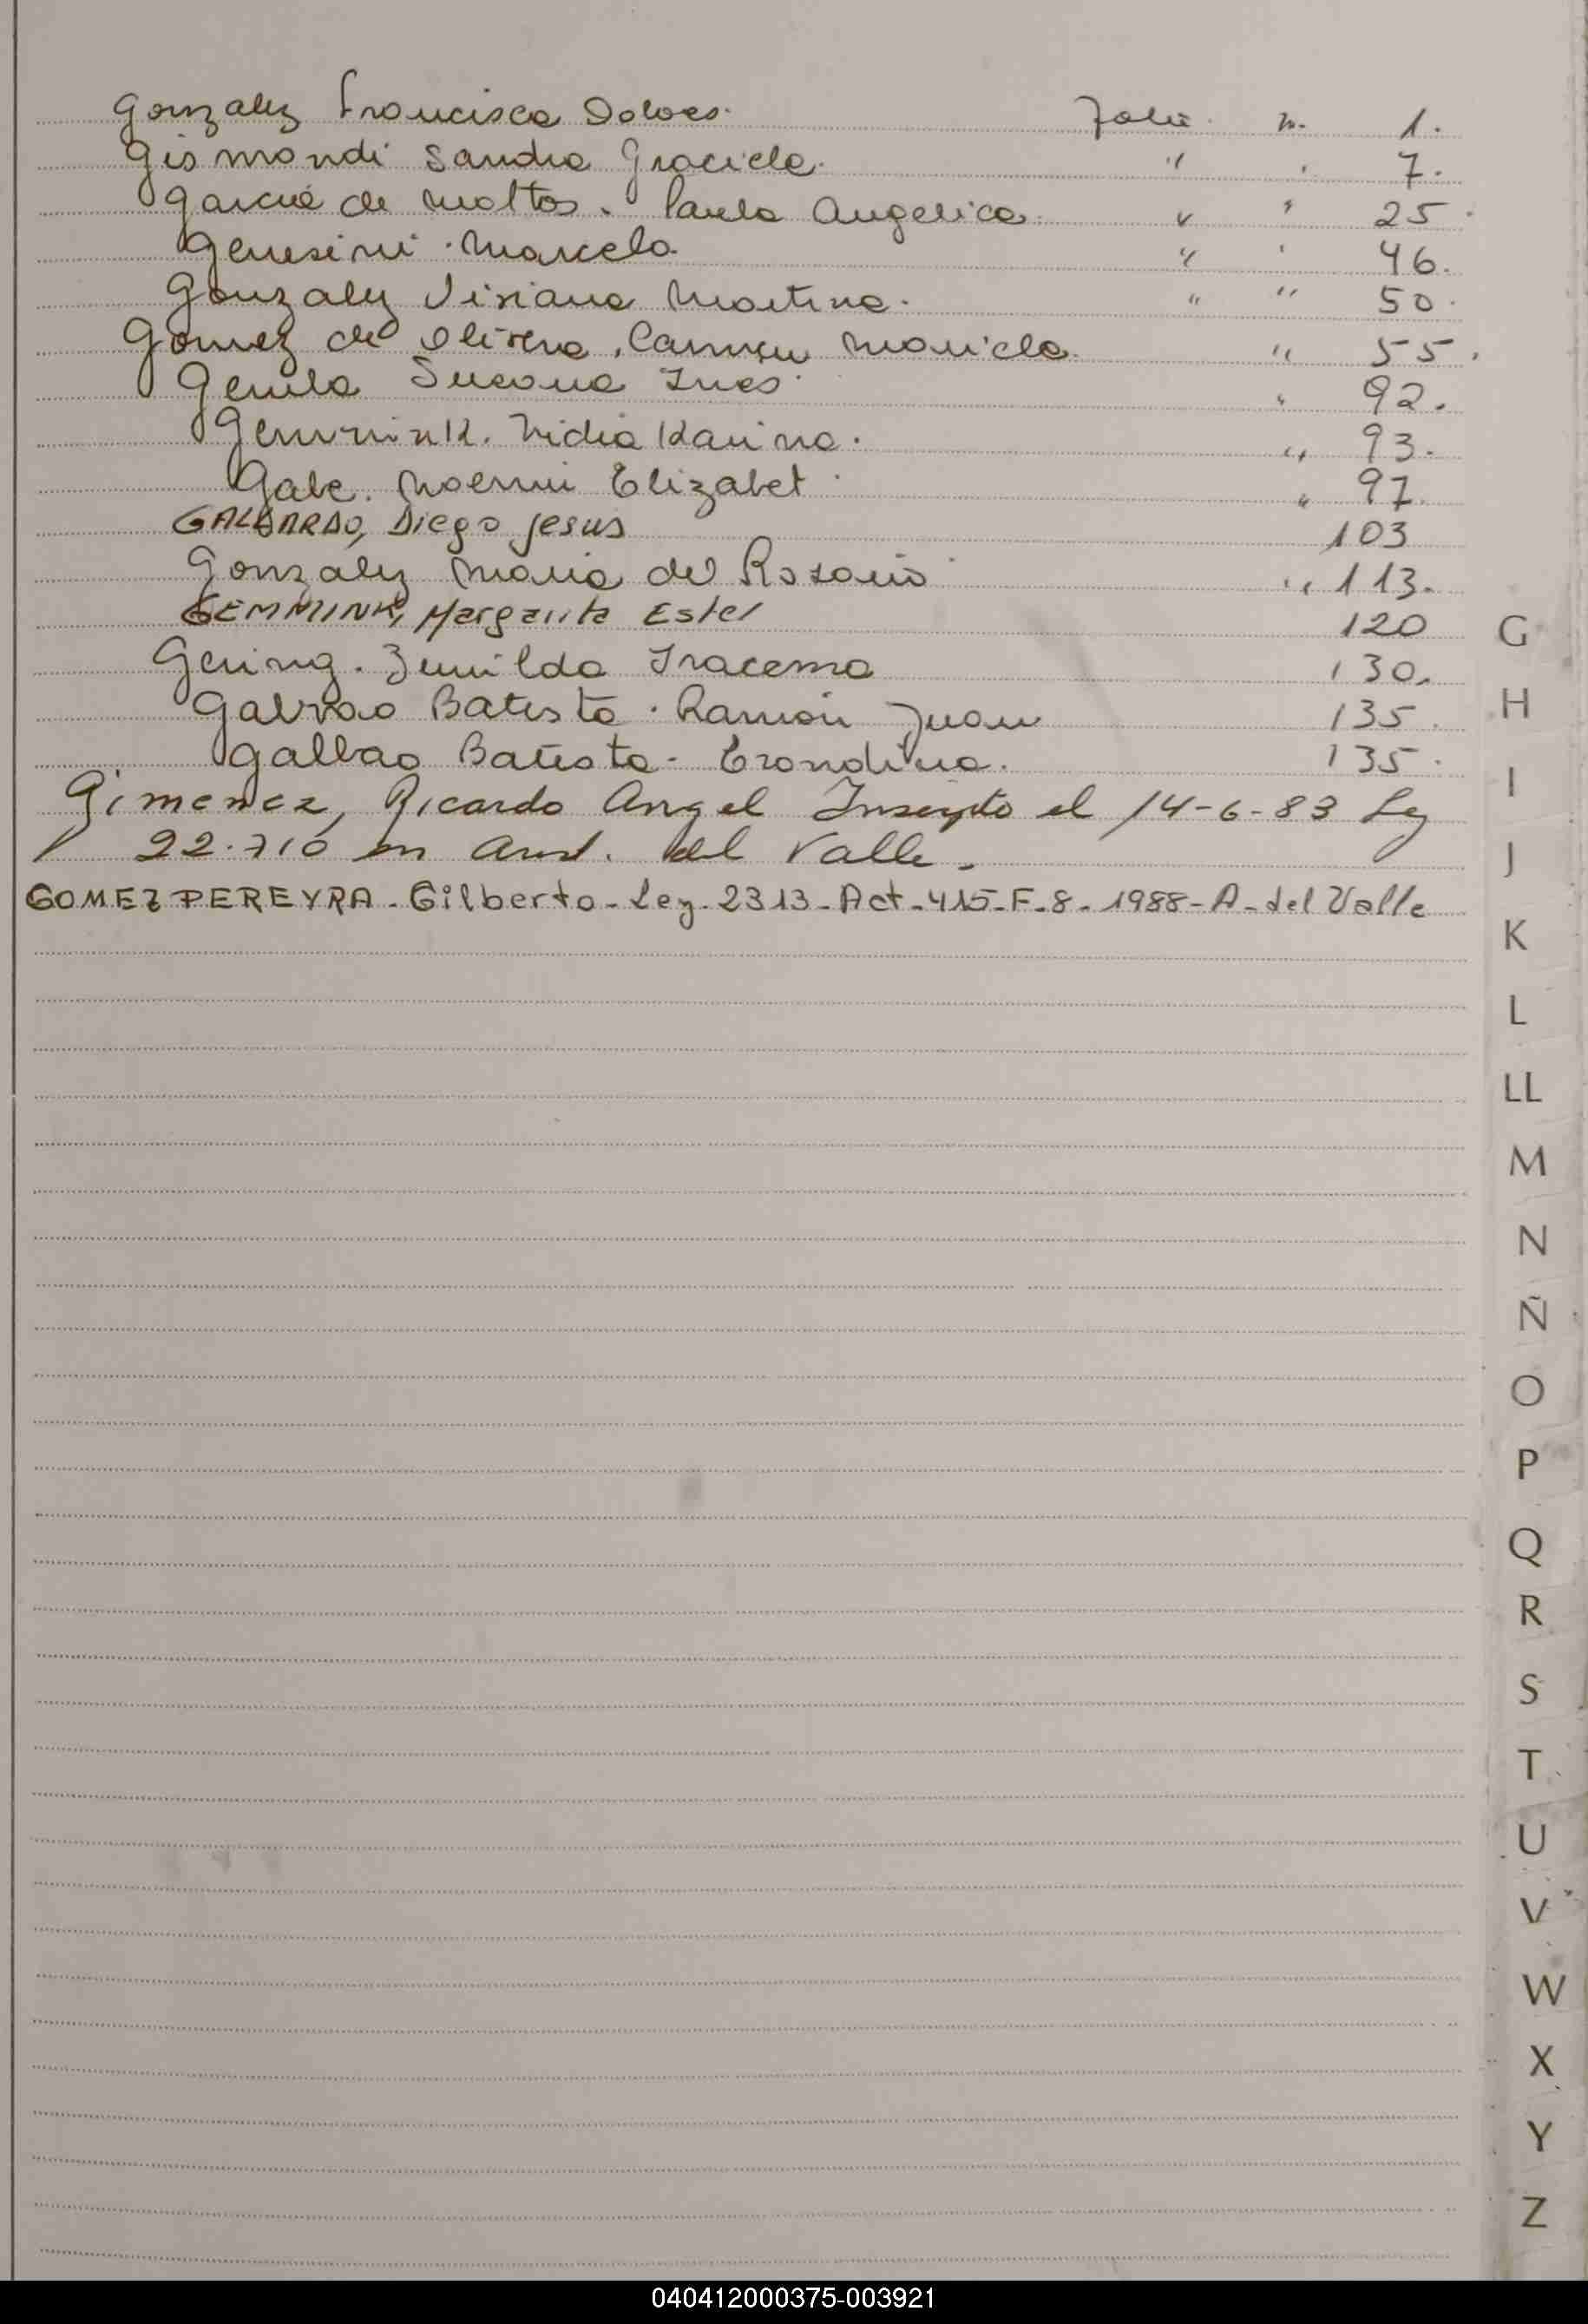 Gonzalez Francisca Dolores. Folio. n. 1.
Gismondi Sandra Graciela. " " 7.
Garcia de Mattos. Paula Angelica. " " 25.
Genesini. Marcelo. " " 46.
Gonzalez Viviana Martina. " " 50.
Gomez de Olivera. Carmen Mariela. " 55.
Genila Susana Ines. " 92.
Gemmink. Nidia Karina. " 93.
Gale. Noemi Elizabet. " 97.
GALLARDO, Diego Jesus 103
Gonzalez Maria del Rosario " 113.
GEMMINK, Margarita Ester 120
Gering. Zunilda Iracema 130.
Galvao Batista. Ramon Juan 135.
Galbao Batista. Erondina. 135.
Gimenez, Ricardo Angel Inscripto el 14-6-83 Ley
22.710 en Arist. del Valle.
GOMEZ PEREYRA - Gilberto - Ley - 2313 - Act - 415 - F - 8 - 1988 - A - del Valle
G
H
I
J
K
L
LL
M
N
Ñ
O
P
Q
R
S
T
U
V
W
X
Y
Z
040412000375-003921